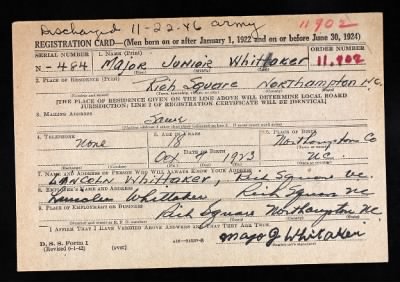 Discharged 11-22-46 army 11902
REGISTRATION CARD—(Men born on or after January 1, 1922 and on or before June 30, 1924)
SERIAL NUMBER 1. NAME (Print) ORDER NUMBER
N-484 Major Junior Whittaker 11,902
(First) (Middle) (Last)
2. PLACE OF RESIDENCE (Print)
Rich Square Northampton N.C.
[THE PLACE OF RESIDENCE GIVEN ON THE LINE ABOVE WILL DETERMINE LOCAL BOARD
JURISDICTION; LINE 2 OF REGISTRATION CERTIFICATE WILL BE IDENTICAL]
3. MAILING ADDRESS
Same
4. TELEPHONE 5. AGE IN YEARS 6. PLACE OF BIRTH
None 18 Northampton Co
DATE OF BIRTH
Oct 7 1923 N.C.
7. NAME AND ADDRESS OF PERSON WHO WILL ALWAYS KNOW YOUR ADDRESS
Lincoln Whittaker, Rich Square N.C.
8. EMPLOYER'S NAME AND ADDRESS
Lincoln Whittaker Rich Square NC
9. PLACE OF EMPLOYMENT OR BUSINESS
Rich Square Northampton N.C.
I AFFIRM THAT I HAVE VERIFIED ABOVE ANSWERS AND THAT THEY ARE TRUE.
D. S. S. Form 1
(Revised 6-1-42) (over)
Majo J Whitaker